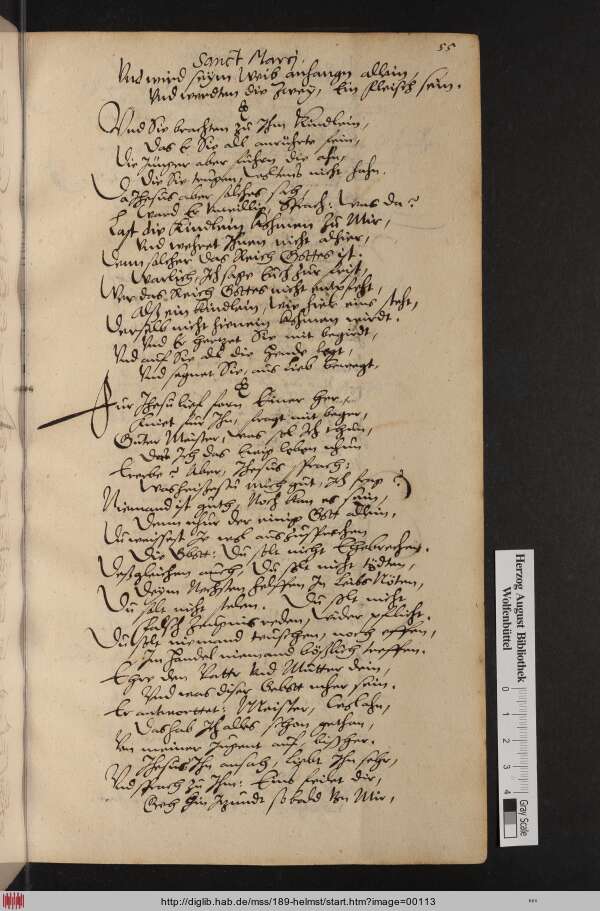 55
Sanct Marci.
Vnd wird seym Weib anhangn allein,
Vnd werdten die Zwey, Ein fleisch sein.
Vnd Sie brachten Zu Ihm Kindlein,
Das Er Sie all anrührte fein,
Die Jünger aber fuhrn die ahn,
die Sie trugen, woltens nicht hahn.
Da Jhesus aber solches sah,
ward Er Vnwillig, Sprach: Was da?
Last die Kindlein Kohmen Zu Mir,
Vnd wehret Ihnen nicht alhier,
Denn solcher das Reich Gottes ist.
Warlich, Ich sage Euch Zur frist,
Wer das Reich Gottes nicht entpfeht,
Alß ein Kindlein, wie hier eins steht,
Derselb nicht hienein Kohmen wirdt.
Vnd Er hertzet Sie mit begirdt,
Vnd auf Sie all die Hende legt,
Vnd segnet Sie, aus lieb bewegt.
Fur Jhesu lief forn Einer her,
Kniet fur Ihn, fragt mit beger,
Guter Meister, was sol Ich thun,
Das Ich das Ewig leben nhun
Ererbe? Aber, Jhesus sprach:
Was heissestu mich gut, Ich frag?
Niemand ist guth, Noch kan es sein,
Denn nhur der einig Gott allein.
Du weissest Je wol auszusprechen
Die Gbott: Du solt nicht Ehebrechen.
Desgleichen auch, Du solt nicht tödten,
Deym Nechsten helffen In leibs Nöten,
Du solt nicht stelen. Du solt nicht
falsch Zeugnis reden, wider pflicht.
Du solt niemand teuschen, noch effen,
Im Handel niemand böslich treffen.
Ehre den Vatter Vnd Mutter dein,
Vnd was diser Gebott mher sein.
Er antworttet: Meister,
Das hab Ich alles schon gethan,
Von meiner Jugent auf, bisher.
Jhesus Ihn ansach, liebt Ihn sehr,
Vnd sprach Zu Ihm: Eins feilet dir,
Geh hin Itzundt so bald von Mir,
Herzog August Bibliothek
Wolfenbüttel
0 1 2 3 4
Gray Scale
http://diglib.hab.de/mss/189-helmst/start.htm?image=00113